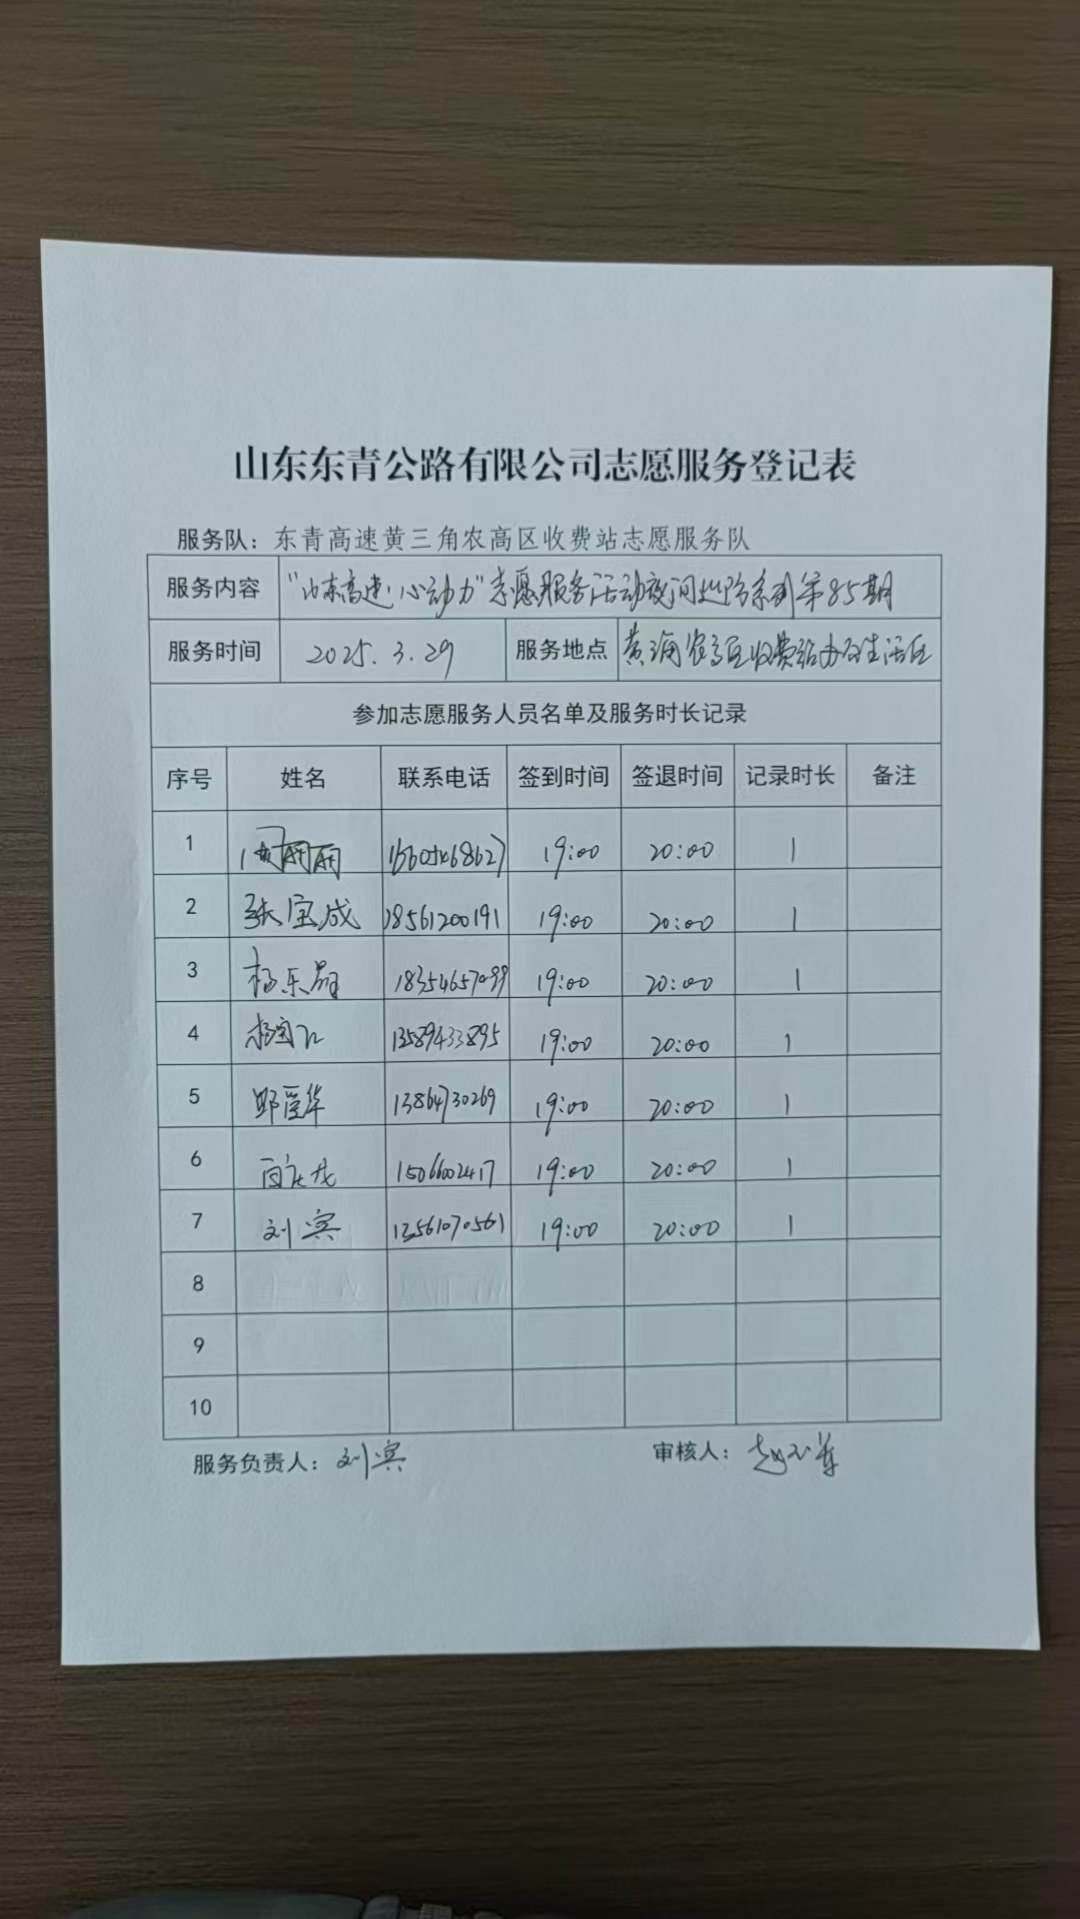 山东东青公路有限公司志愿服务登记表
服务队：东青高速黄三角农高区收费站志愿服务队
服务内容 “山东高速·心动力”志愿服务活动夜间巡防系列第85期
服务时间 2025.3.29 服务地点 黄三角农高区收费站办公生活区
参加志愿服务人员名单及服务时长记录
序号 姓名 联系电话 签到时间 签退时间 记录时长 备注
1 19:00 20:00 1
2 张宝成 18561200191 19:00 20:00 1
3 18354657099 19:00 20:00 1
4 13589433895 19:00 20:00 1
5 13864730269 19:00 20:00 1
6 15066002417 19:00 20:00 1
7 刘滨 13561070561 19:00 20:00 1
8
9
10
服务负责人：刘滨 审核人：